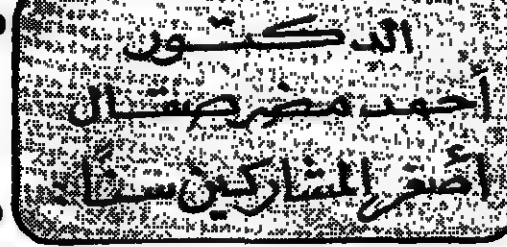 الدكتور
أحمد مضر صقال
أصغر المشاركين سنًا :